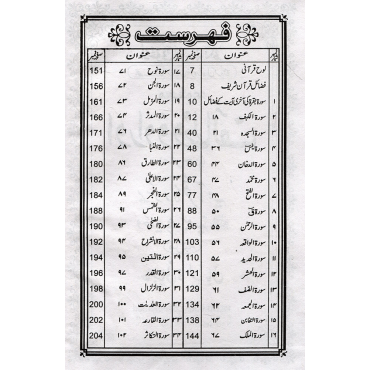 فہرست
نمبر شمار عنوان صفحہ نمبر نمبر شمار عنوان صفحہ نمبر
لوح قرآنی 7 ۱۷ سورۃ نوح ۷۱ 151
فضائل قرآن شریف 8 ۱۸ سورۃ الجن ۷۲ 156
۱ سورۃ بقرہ کی آخری آیت کے فضائل 10 ۱۹ سورۃ المزمل ۷۳ 161
۲ سورۃ الکہف ۱۸ 12 ۲۰ سورۃ المدثر ۷۴ 166
۳ سورۃ السجدہ 40 ۲۱ سورۃ الدھر 171
۴ سورۃ یٰسٓ ۳۶ 48 ۲۲ سورۃ النبا ۷۸ 176
۵ سورۃ الدخان ۴۴ 60 ۲۳ سورۃ الطارق ۸۶ 180
۶ سورۃ محمد ۴۷ 67 ۲۴ سورۃ الاعلیٰ ۸۷ 182
۷ سورۃ الفتح ۴۸ 77 ۲۵ سورۃ الفجر ۸۹ 184
۸ سورۃ قٓ ۵۰ 88 ۲۶ سورۃ الشمس ۹۱ 188
۹ سورۃ الرحمٰن ۵۵ 95 ۲۷ سورۃ الضحیٰ ۹۳ 190
۱۰ سورۃ الواقعہ ۵۶ 103 ۲۸ سورۃ الانشراح ۹۴ 192
۱۱ سورۃ الحدید ۵۷ 110 ۲۹ سورۃ والتین ۹۵ 194
۱۲ سورۃ الحشر ۵۹ 121 ۳۰ سورۃ القدر ۹۷ 196
۱۳ سورۃ الصف ۶۱ 129 ۳۱ سورۃ الزلزال ۹۹ 198
۱۴ سورۃ الجمعہ ۶۲ 134 ۳۲ سورۃ العٰدیٰت ۱۰۰ 200
۱۵ سورۃ التغابن ۶۴ 138 ۳۳ سورۃ القارعہ ۱۰۱ 202
۱۶ سورۃ الملک ۶۷ 144 ۳۴ سورۃ التکاثر ۱۰۲ 204